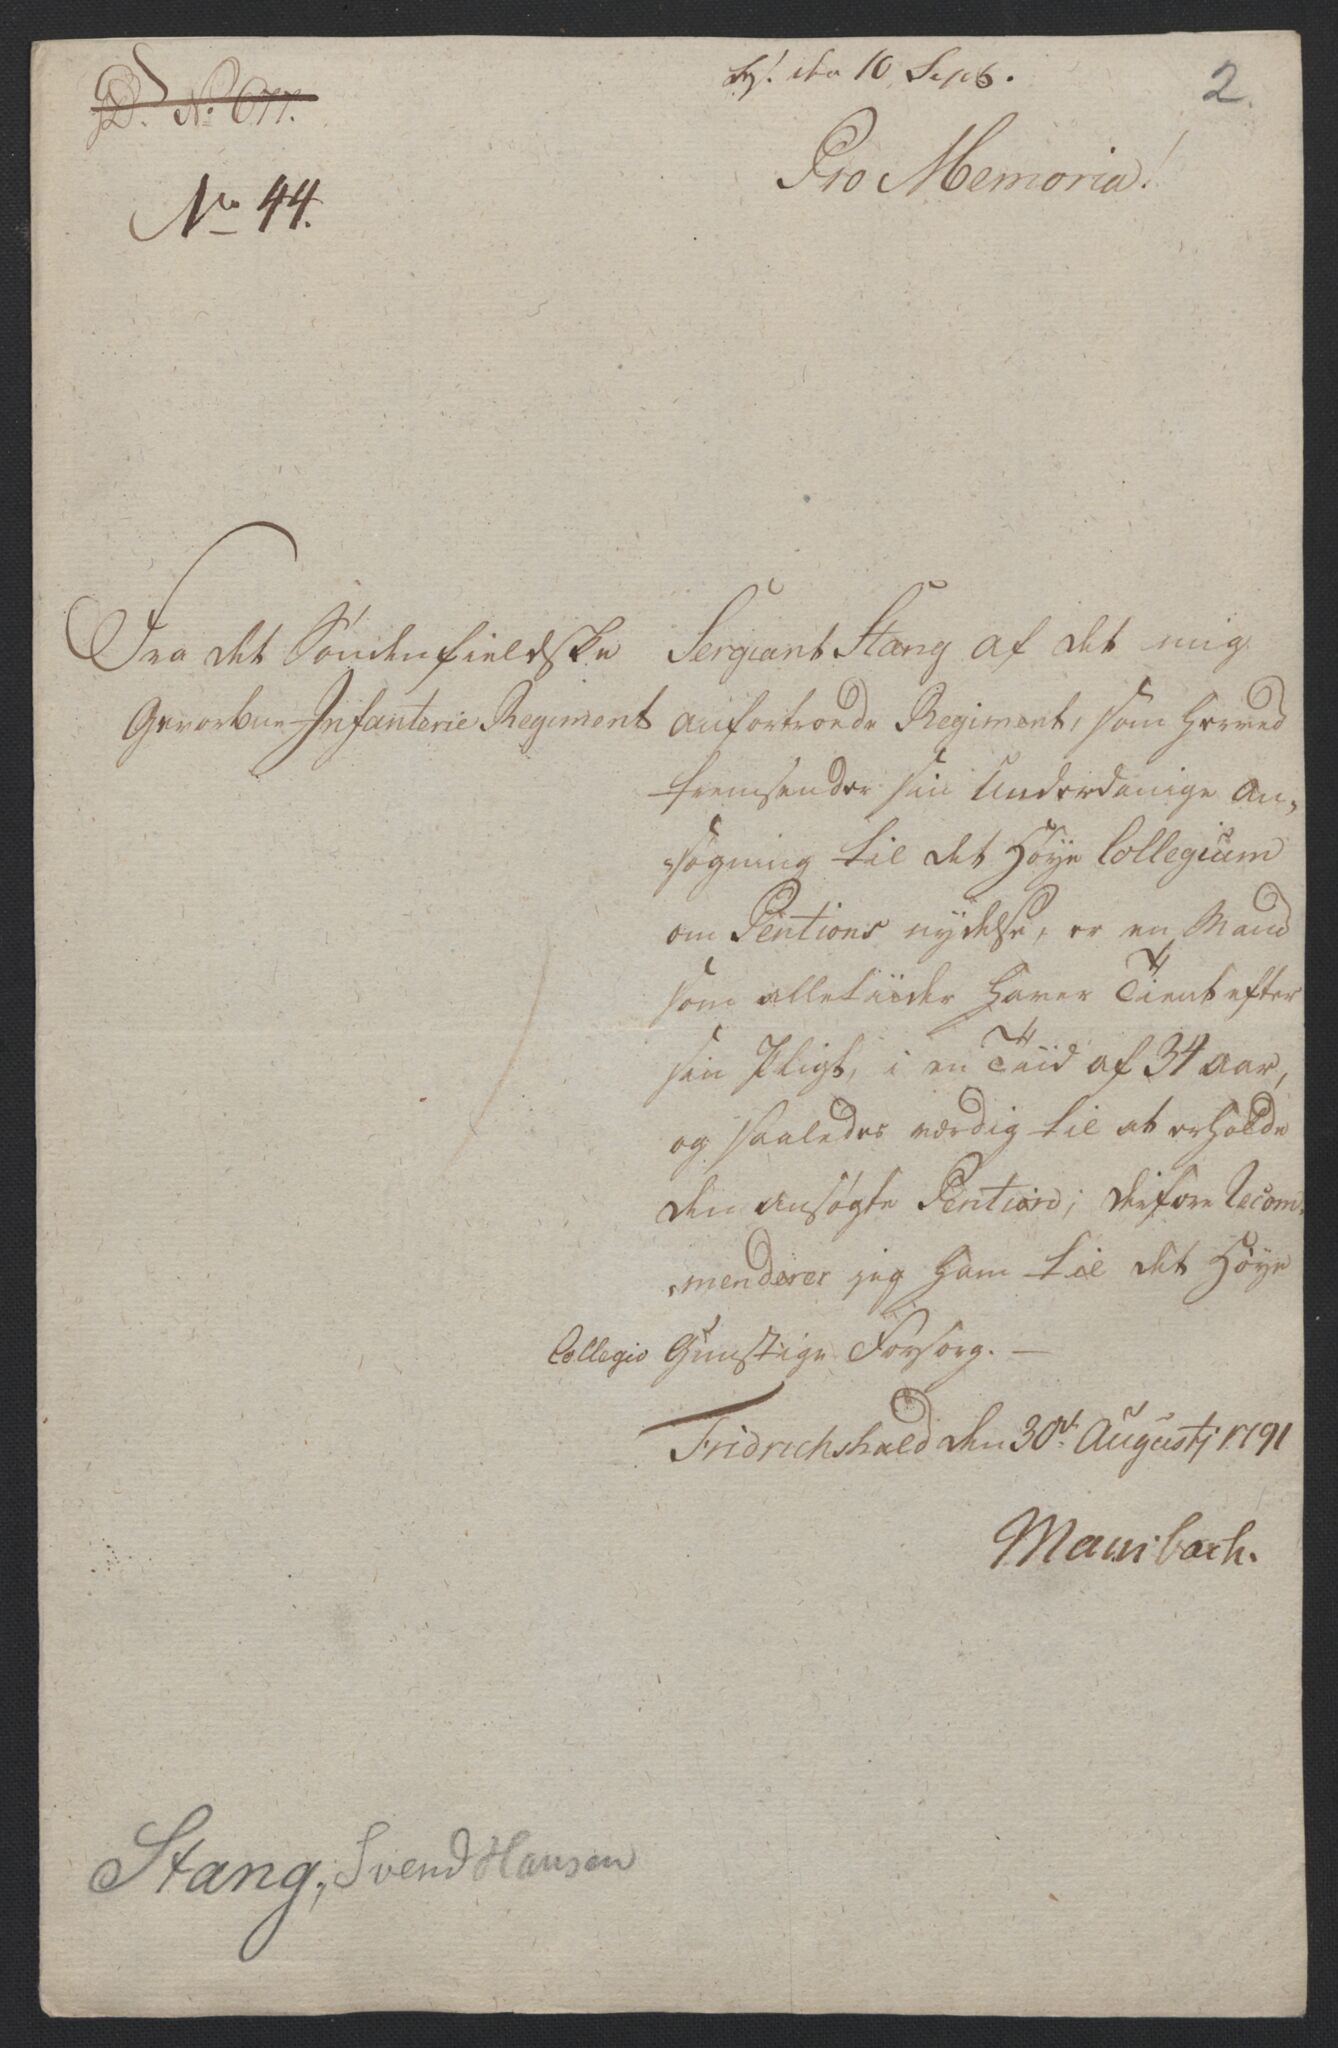 D. No 677.
No 44.
den 10 Septb.
2.
Pro Memoria!
Fra det Søndenfieldske
Gevorbne Infanterie Regiment
Sergiant Stang af det mig
anfortroede Regiment, som herved
fremsender sin Underdanige An,
,søgning til det Høye Collegium
om Pentions nydelse, er en Mand
som alletiider haver Tient efter
sin Pligt, i en Tiid af 34 aar,
og saaledes værdig til at erholde
den ansøgte Pention; derfore Recom,
,menderer jeg ham til det Høye
Collegio Gunstige Forsorg. —
Fridrichshald den 30te Augustj 1791
Mansbach.
Stang, Svend Hansen